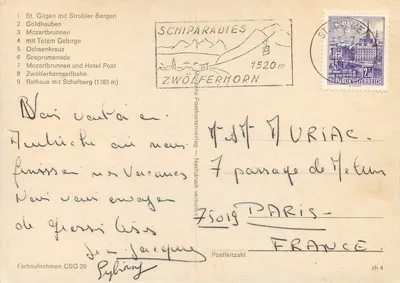 1 St. Gilgen mit Strobler Bergen
2 Goldhauben
3 Mozartbrunnen
4 mit Totem Gebirge
5 Ochsenkreuz
6 Seepromenade
7 Mozartbrunnen und Hotel Post
8 Zwölferhorngeilbahn
9 Rathaus mit Schafberg (1783 m)
SCHIPARADIES
1520 m
ZWÖLFERHORN
ST.
en
Autriche où nous
finissons nos vacances
Nous vous envoyons
de grosses bises
Jean-Jacques
M. MURIAC
7 passage de
75019 PARIS
FRANCE
Postleitzahl
Farbaufnahmen CSG 29
rh 4